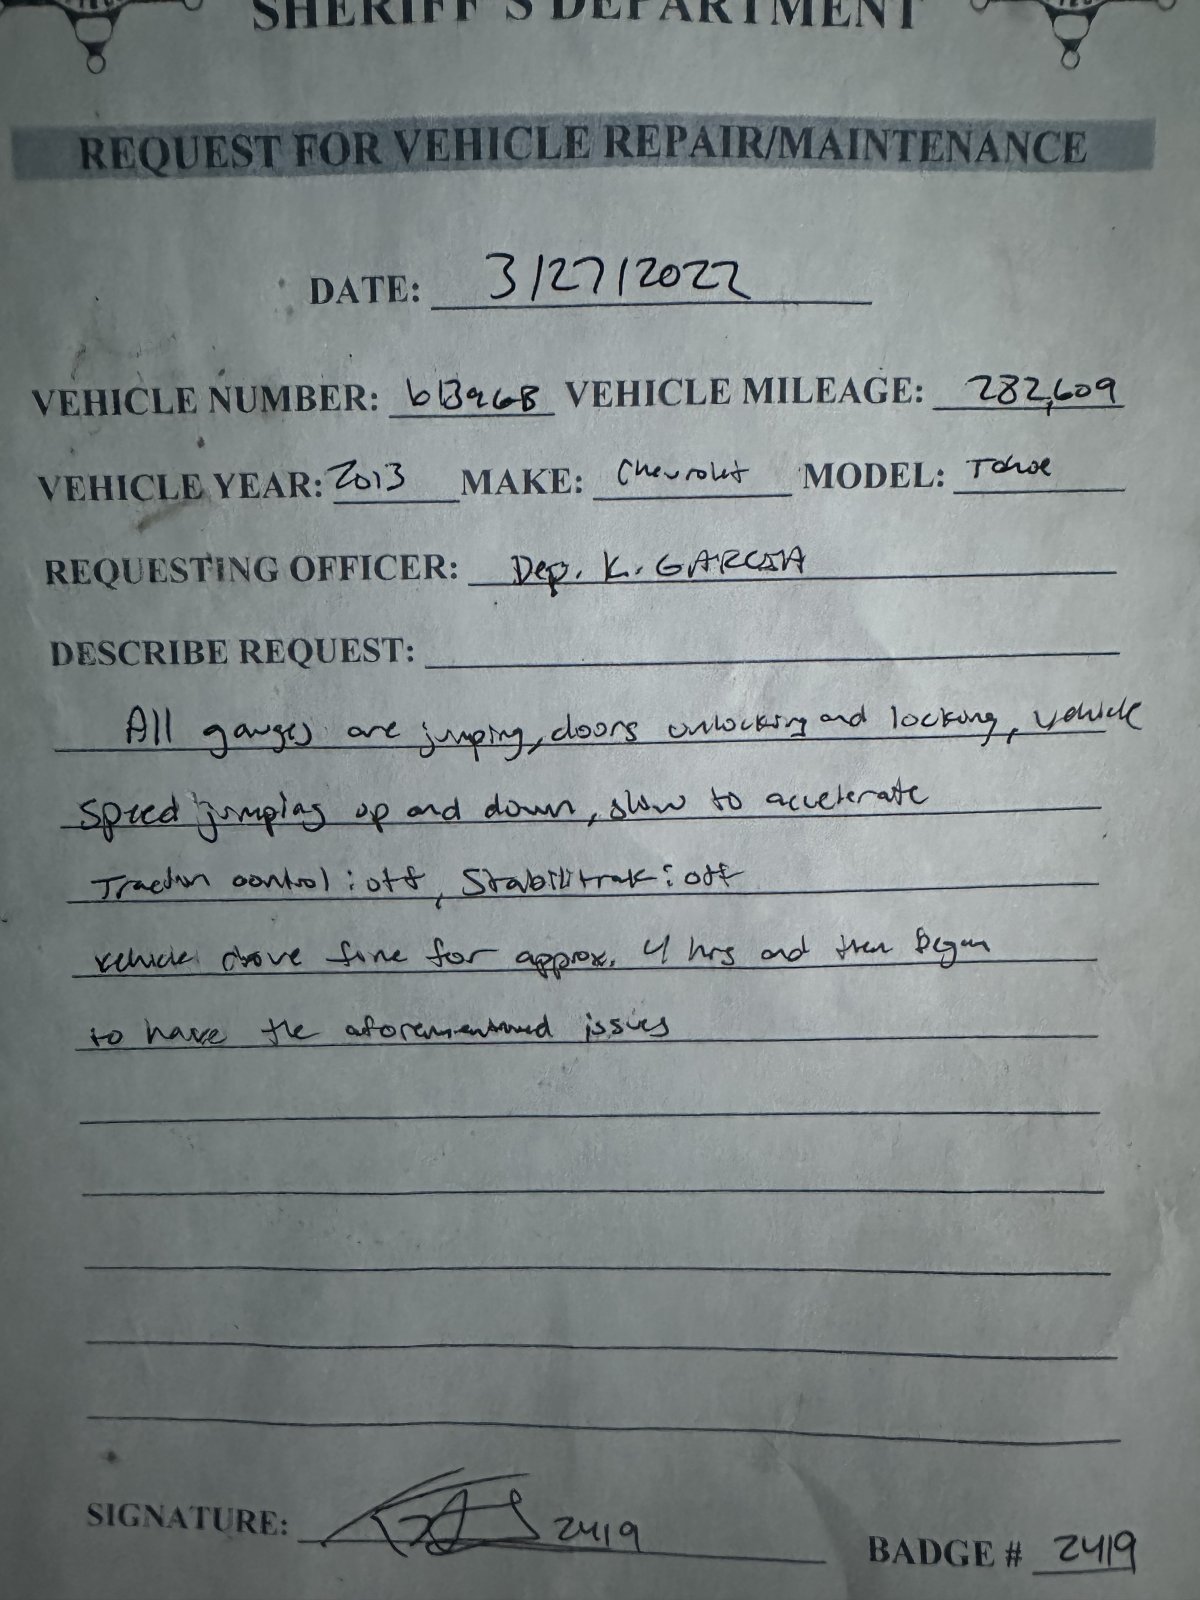 SHERIFF'S DEPARTMENT
REQUEST FOR VEHICLE REPAIR/MAINTENANCE
DATE: 3/27/2022
VEHICLE NUMBER: VEHICLE MILEAGE: 282,609
VEHICLE YEAR: 2013 MAKE: Chevrolet MODEL: Tahoe
REQUESTING OFFICER: Dep. K. GARCIA
DESCRIBE REQUEST:
All gauges are jumping, doors unlocking and locking, vehicle
speed jumping up and down, slow to accelerate
Traction control: off, Stabilitrak: off
vehicle drove fine for approx. 4 hrs and then began
to have the aforementioned issues
SIGNATURE: 2419
BADGE # 2419